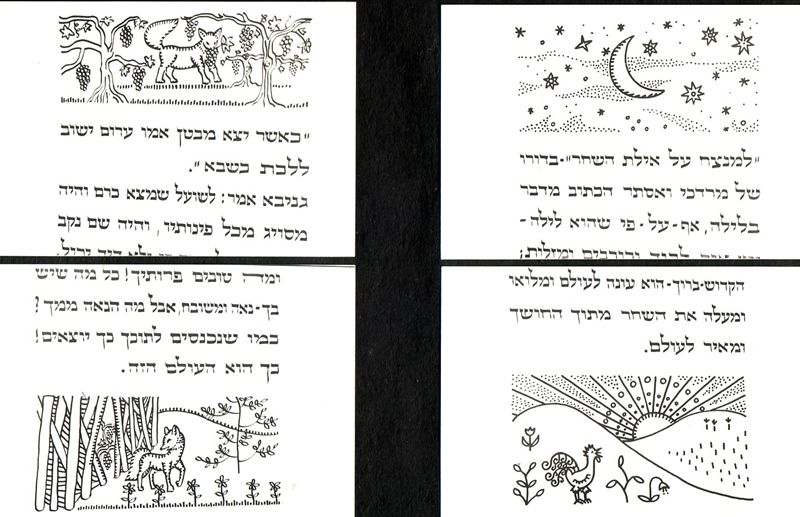 "למנצח על אילת השחר"-בדורו
של מרדכי ואסתר הכתוב מדבר
בלילה, אף-על-פי שהוא לילה-
וכוכבים ומזלות;
הקדוש-ברוך-הוא עונה לעולם ומלואו
ומעלה את השחר מתוך החושך
ומאיר לעולם.
"כאשר יצא מבטן אמו ערום ישוב
ללכת כשבא".
גניבא אמר: לשועל שמצא כרם והיה
מסויג מכל פינותיו, והיה שם נקב
ומה טובים פרותיך! כל מה שיש
בך-נאה ומשובח, אבל מה הנאה ממך?
כמו שנכנסים לתוכך כך יוצאים!
כך הוא העולם הזה.